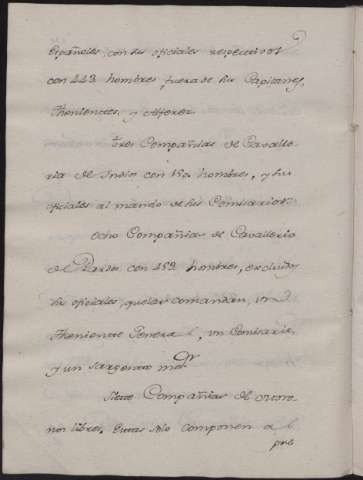 Españoles con sus oficiales respectivos
con 443 hombres fuera de sus Capitanes,
Thenientes, y Alferez
tres Compañias de Cavalle-
ria de Indio con 150 hombres, y sus
oficiales al mando de sus Comisarios
ocho Compañias de Cavalleria
de Pardos con 459 hombres, excluidos
sus oficiales, que las comandan, un
Theniente General, un Comisario
y un sargento mór
siete Compañias de moro-
nos libres. Estas solo componen a l
pre